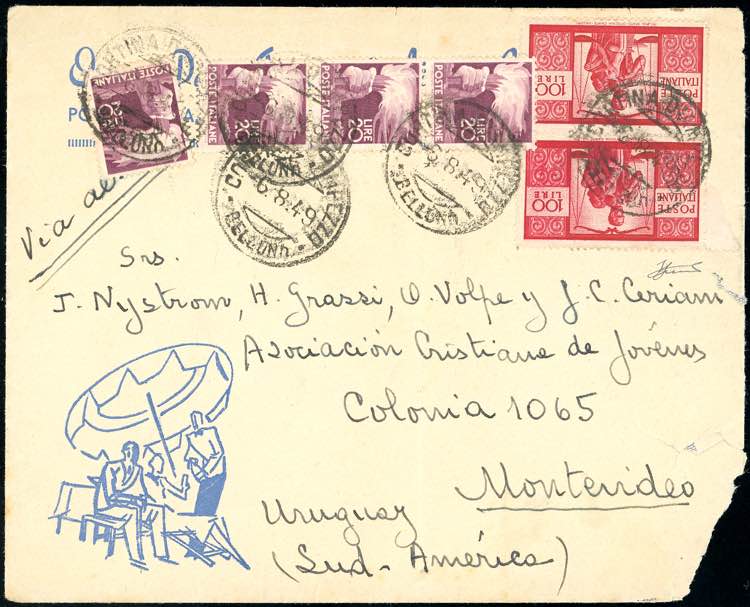 POSTE ITALIANE
POSTE ITALIANE LIRE 20
POSTE ITALIANE LIRE 20
POSTE ITALIANE LIRE 20
POSTE ITALIANE 100 LIRE
POSTE ITALIANE 100 LIRE
6.8.49
BELLUNO
Via
Srs.
J. Nystrom, H. Grassi, O. Volpe y J. C. Ceriani
Asociación Cristiana de Jóvenes
Colonia 1065
Montevideo
Uruguay
(Sud-América)